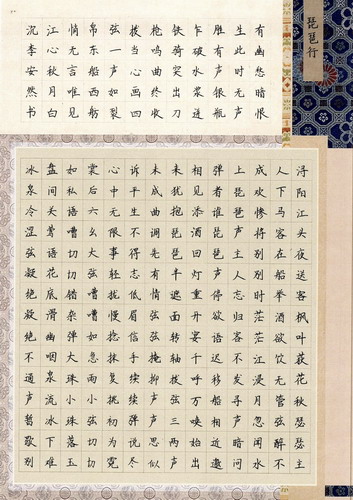 琵琶行
浔阳江头夜送客枫叶荻花秋瑟瑟主
人下马客在船举酒欲饮无管弦醉不
成欢惨将别别时茫茫江浸月忽闻水
上琵琶声主人忘归客不发寻声暗问
弹者谁琵琶声停欲语迟移船相近邀
相见添酒回灯重开宴千呼万唤始出
未犹抱琵琶半遮面转轴拨弦三两声
未成曲调先有情弦弦掩抑声声思似
诉平生不得志低眉信手续续弹说尽
心中无限事轻拢慢捻抹复挑初为霓
裳后六幺大弦嘈嘈如急雨小弦切切
如私语嘈切切错杂弹大珠小珠落玉
盘间关莺语花底滑幽咽泉流冰下难
冰泉冷涩弦凝绝凝绝不通声暂歇别
有幽愁暗恨
生此时无声
胜有声银瓶
乍破水浆迸
铁骑突出刀
枪鸣曲终收
拨当心画四
弦一声如裂
帛东船西舫
悄无言唯见
江心秋月白
沉李安然书